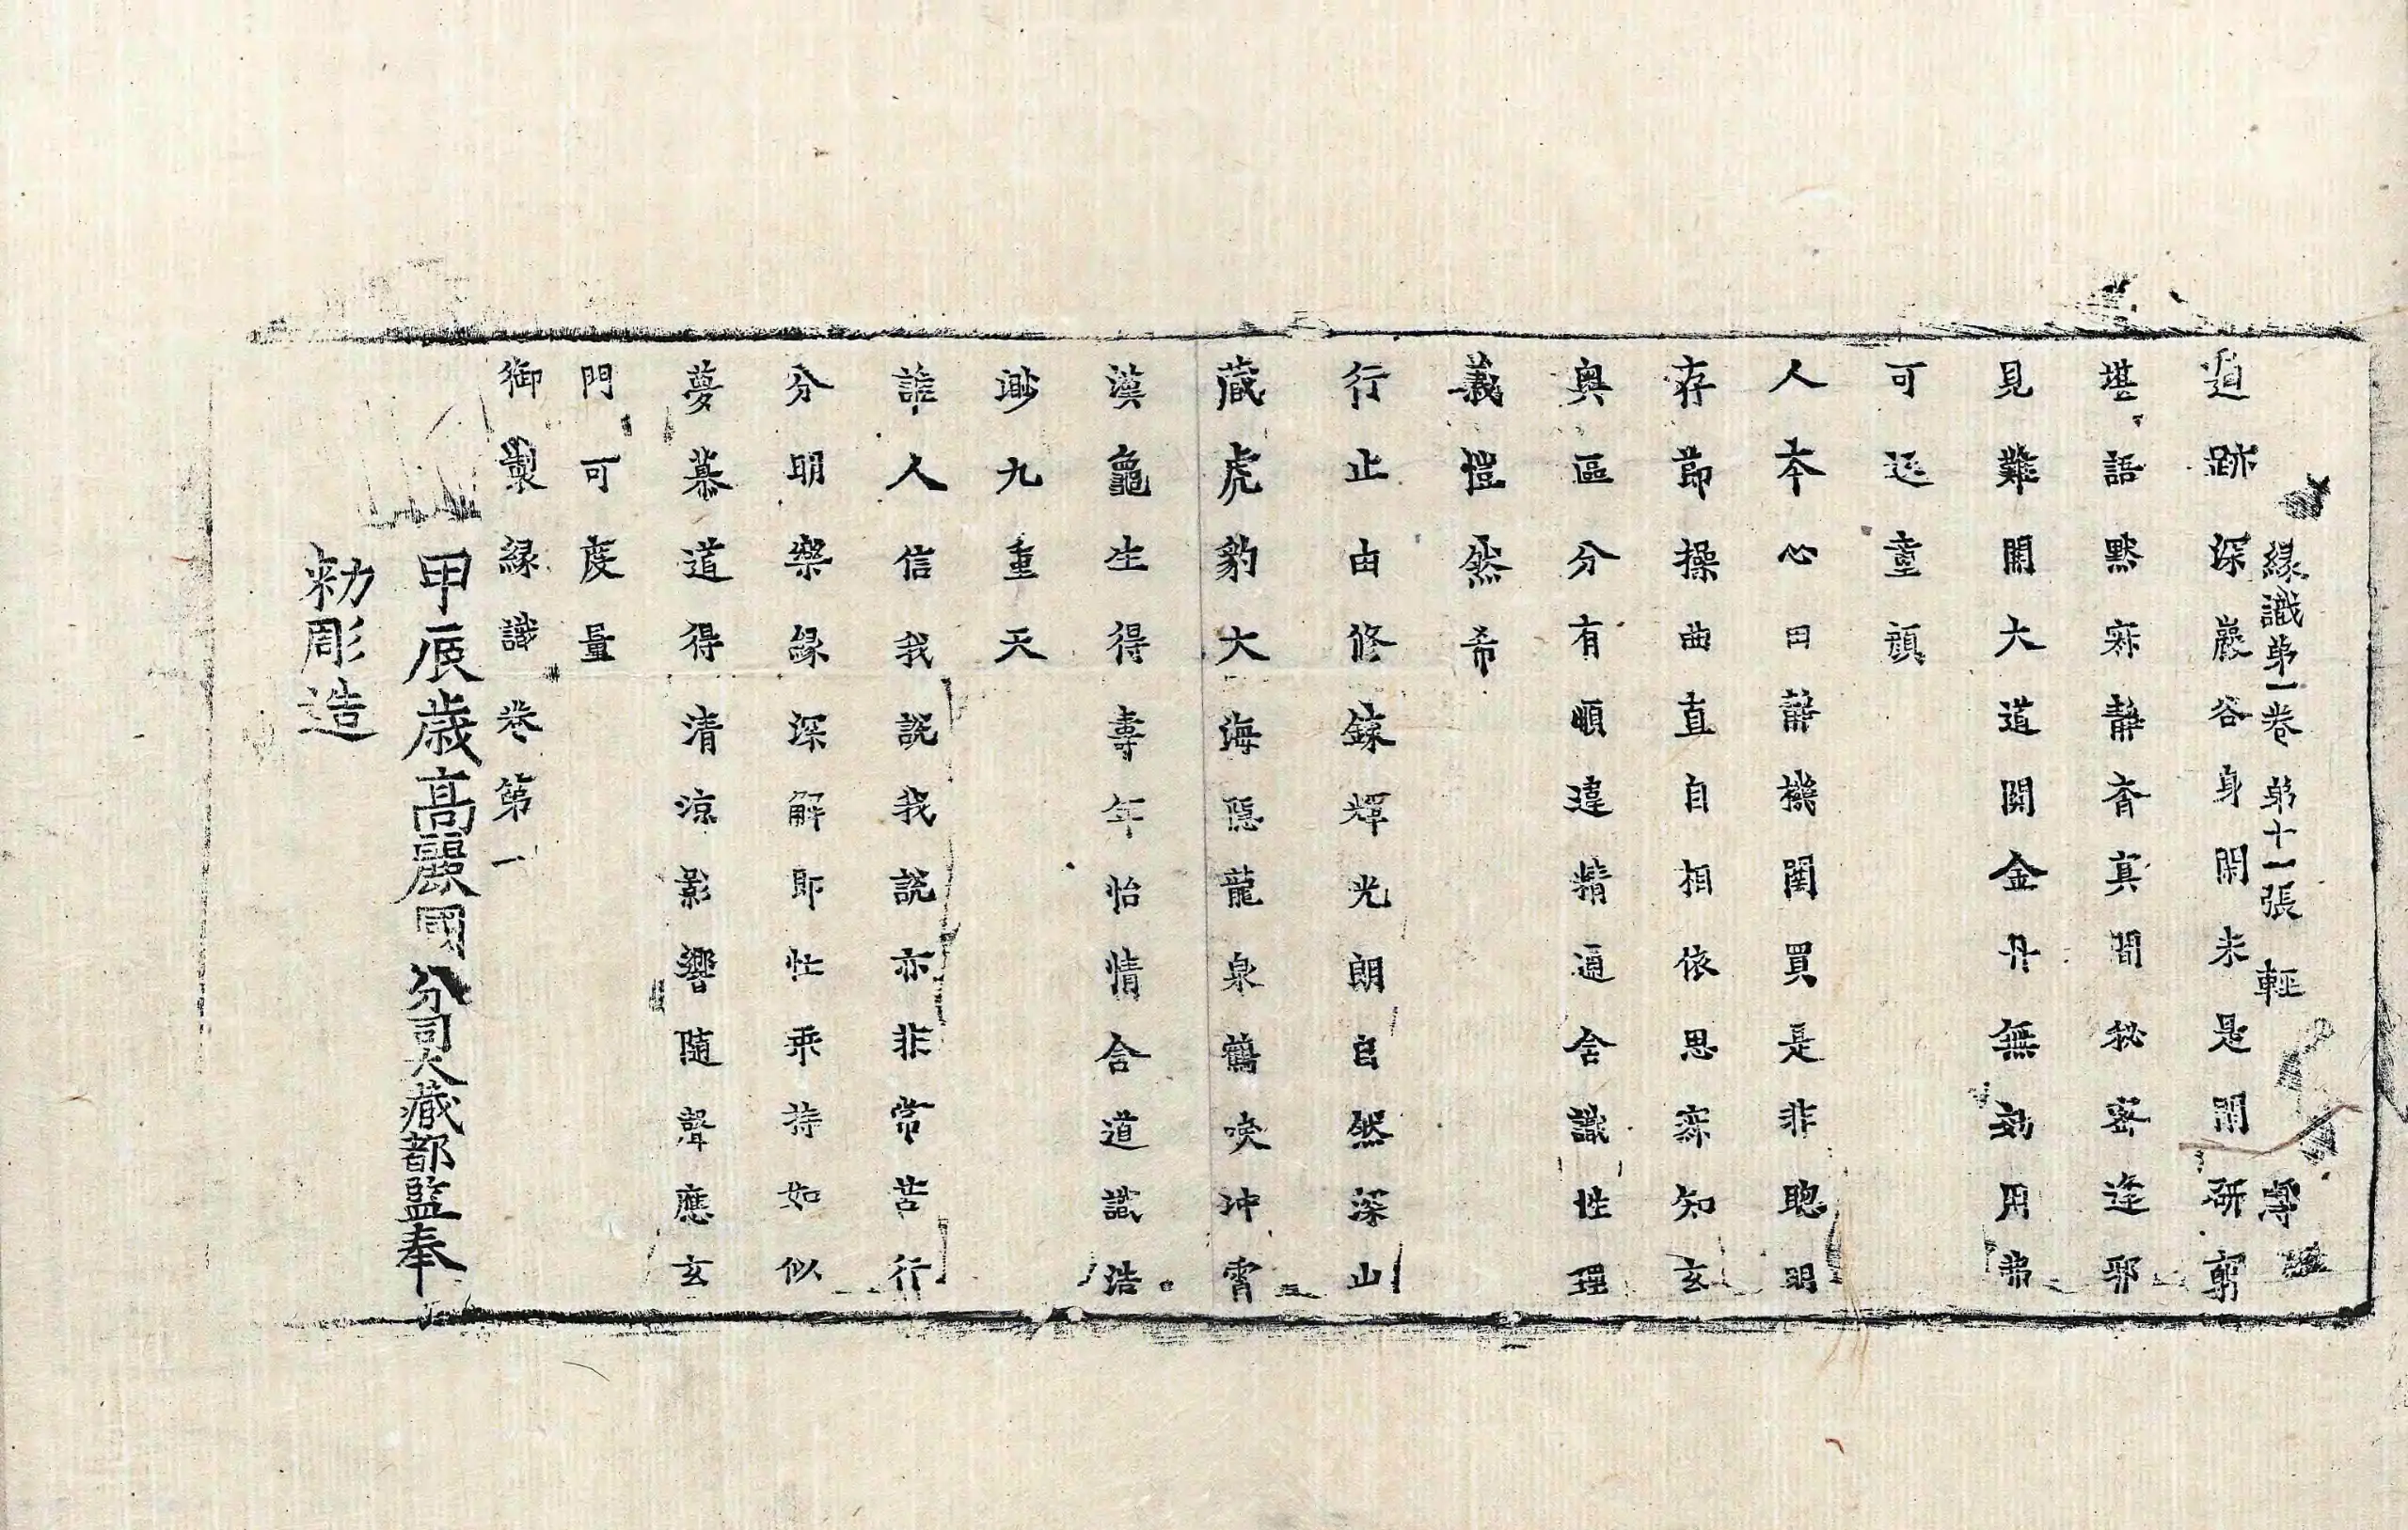 縁識第一卷 第十一張 輕
道跡深巖谷身閑未是閑研窮
堪語默寂静杳真間秘密逢邪
見難開大道関金丹無効用弗
可返童顔
人本心田静機関買是非聰明
存節操曲直自相依思寂知玄
奥區分有順違精通含識性理
義愷然希
行止由修鍊輝光朗自然深山
藏虎豹大海隠龍泉鶴唳冲霄
漢龜生得壽年怡情合道識浩
渺九重天
誰人信我說我說亦非常苦行
分明樂緣深解即忙乘持如似
夢慕道得清涼影響隨聲應玄
門可度量
御製縁識卷第一
甲辰歳高麗國分司大藏都監奉
勑彫造